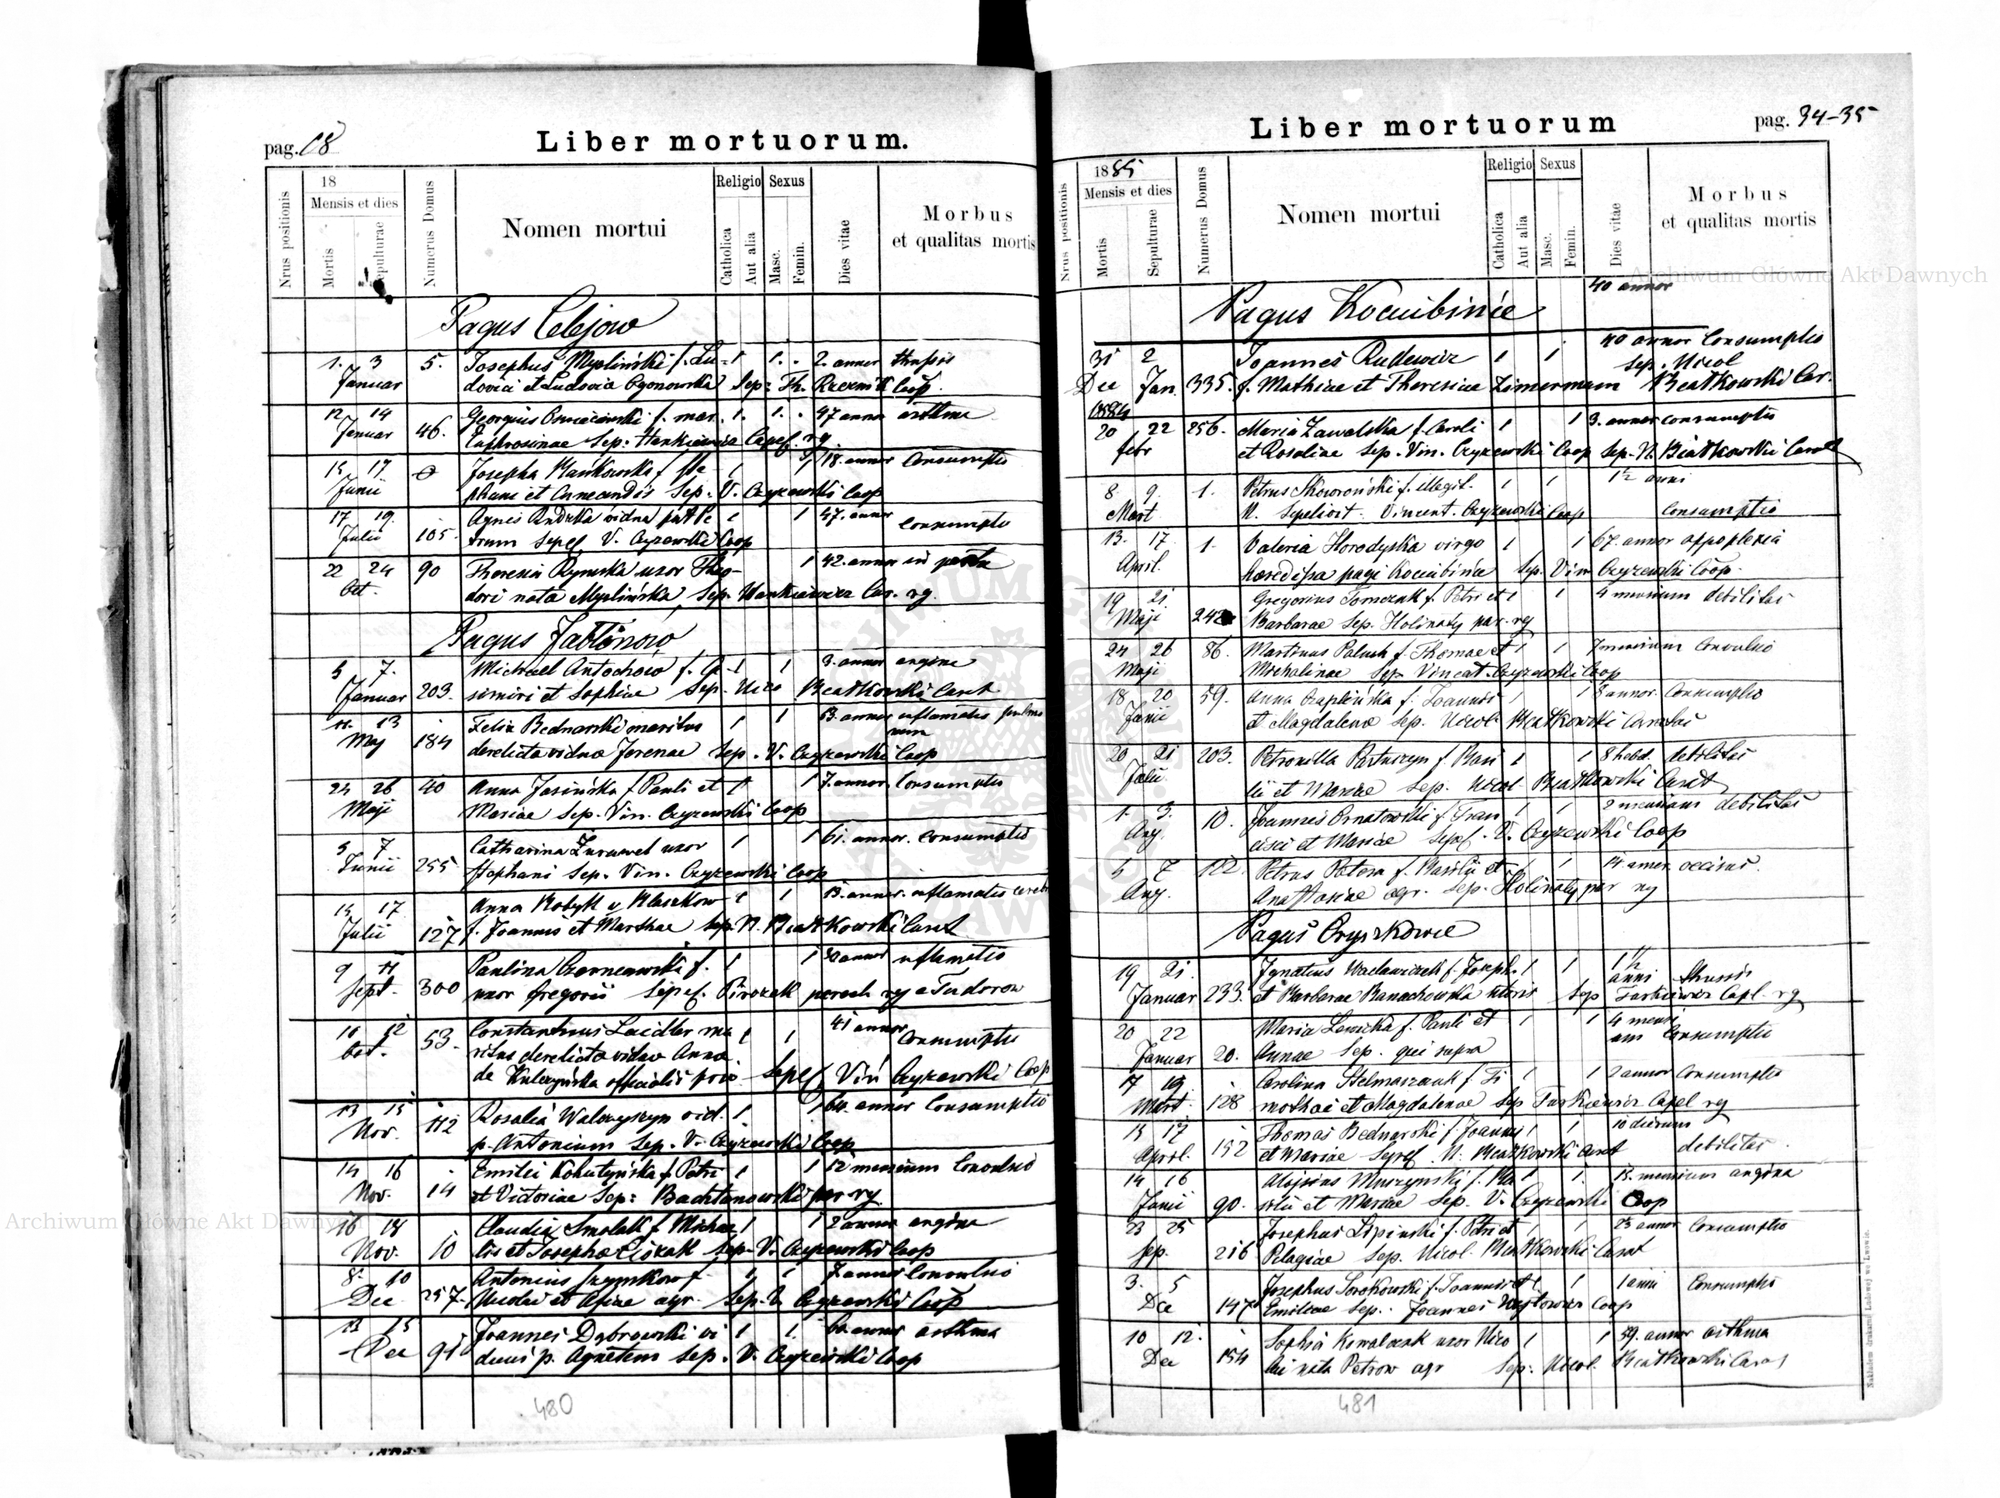 pag. 08
Liber mortuorum.
Nrus positionis
18
Mensis et dies
Mortis
Sepulturae
Numerus Domus
Nomen mortui
Religio
Catholica
Aut alia
Sexus
Masc.
Femin.
Dies vitae
Morbus
et qualitas mortis
Pagus Celejow
1. 3 5. Josephus Mysliński f. Lu- 1 1. 2. annor thussis
Januar dovici et Ludovica Ogonowska Sep: Th. Coop.
12 14 Georgius f. mar. 1. 1. 47 annor asthma
Januar 46. Euphrosinae Sep: Hankiewicz Capel. rg.
15 17 Josepha Mankowska f. Ste- 1 1 18. annor Consumptio
Junii phani et Sep. V. Czyzewski Coop
17 19. Agnes vidua post Pe 1 1 47. annor
Julii 105. trum Sepel V. Czyzewski Coop Consumptio
22 24 90 Theresia Rymska uxor Theo- 1 42. annor in partu
Oct. dori nata Myslińska, Sep. Hankiewicz Car. rg.
Pagus Jabłonow
5 7. Michael Antochow f. 1 1 3. annor angina
Januar 203. simiri et Sophiae Sep. Nico Beatkowski Carat
11. 13 Felix Bednarski maritus 1 1 53. annor inflamatio pulmo
Maj 184 derelicta vidua Sep. V. Czyzewski Coop num
24 26 40 Anna Jasińska f. Pauli et 1 1 7. annor. Consumptio
Maji Mariae Sep. Vin. Czyzewski Coop
5 7 Catharina Zurawel uxor 1 1 61. annor. Consumptio
Junii 255 Stephani Sep. Vin. Czyzewski Coop
15 17 Anna Kobylt v Klaszkow 1 1 annor. inflamatio cereb
Julii 127 f. Joannis et Marthae Sep. N. Beatkowski Carat
9 11 Paulina Czerniawski f. 1 1 30 annor inflamatio
Sept. 300 uxor Gregorii Sepel. Pirozek paroch rg a Tudorow
10 12 Constantinus Laidler ma 1 1 41 annor
Oct. 53. ritus derelicta vidua Anna Consumptio
de Kulczyńska officialis Sepel Vin Czyzewski Coop
13 15 Rosalia Walczyszyn vid. 1 1 64. annor Consumptio
Nov. 112 p. Antonium Sep. V. Czyzewski Coop
14 16 Emilia f. Petri 1 1 12 mensium Convulsio
Nov. 14 et Victoriae Sep: Bachtanowski par rg.
16 18 Claudia Smolak f. Michae 1 1 2 annor angina
Nov. 10 lis et Josepha Ciszak Sep. V. Czyzewski Coop
8. 10 Antonius Szymkow f. 1 1 7 annor Convulsio
Dec 257. Nicolai et agr. Sep. V. Czyzewski Coop
13 15 Joannes Dąbrowski vi 1 1. 60 annor asthma
Dec 91 duus p. Agnetem Sep. V. Czyzewski Coop
480
Liber mortuorum
pag. 34-35
Nrus positionis
1885
Mensis et dies
Mortis
Sepulturae
Numerus Domus
Nomen mortui
Religio
Catholica
Aut alia
Sexus
Masc.
Femin.
Dies vitae
Morbus
et qualitas mortis
Pagus Kociubińce
40 annor
31 2 Joannes Rudewicz 1 1 40 annor Consumptio
Dec Jan. 335. f. Mathiae et Theresiae Zimermann Sep. Nicol Beatkowski Car.
1884
20 22 256. Maria Zawalska f. Caroli 1 1 3. annor consumptio
febr et Rosaliae Sep. Vin. Czyzewski Coop Sep. N. Biatkowski Carat
8 9. 1. Petrus Skoworoński f. illegit. 1 1 1½ anni
Mart N. Sepelivit Vincent. Czyzewski Coop Consumptio
13. 17 1. Valeria Horodyska virgo 1 1 67 annor appoplexia
April. haeredissa pagi Kociubińce Sep. Vin Czyzewski Coop.
19 21. Gregorius Tomczuk f. Petri et 1 1 4 mensium debilitas
Maji 242 Barbarae Sep. Holinaty par. rg
24 26 86. Martinus Paluch f. Thomae et 1 1 7 mensium Convulsio
Maji Michalinae Sep Vincent. Czyzewski Coop
18 20 59. Anna Czaplińska f. Joannis 1 1 8 annor. Consumptio
Junii et Magdalena Sep. Nicol. Beatkowski Carat
20 21 203. Petronilla f. Basi 1 1 8 hebd. debilitas
Julii lii et Mariae Sep. Nicol Beatkowski Carat
1. 3. 10. Joannes Ornatowski f. Fran 1 1 2 mensium debilitas
Aug. cisci et Mariae Sepel. V. Czyzewski Coop
5 7 122. Petrus f. Basilii et 1 1 14 annor. occisus.
Aug. Anastasiae agr. Sep. Holinaty par rg
Pagus Oryszkowce
19 21. Ignatius Waclawiczek f. Joseph. 1 1 1½ anni thussis
Januar 233. et Barbarae Banachowska Sep Tarkiewicz Capl. rg
20 22 Maria Lewicka f. Pauli et 1 1 4 mensi
Januar 20. Annae Sep. qui supra um Consumptio
17 19. Carolina Stelmaszczuk f. Ti 1 1 2 annor Consumptio
Mart. 128 mothai et Magdalenae Sep Tarkiewicz Capel rg
15 17 Thomas Bednarski f. Joannis 1 1 10 dierum
April. 152 et Mariae Sepel. N. Beatkowski Carat debilitas.
14 16 Alojsius Murzynski f. Ba 1 1. 15. mensium angina
Junii 90. silii et Mariae Sep. V. Czyzewski Coop
23 25 Josephus Lipinski f. Petri et 1 1 23 annor Consumptio
Sep. 216 Pelagiae Sep. Nicol. Beatkowski Carat
3. 5 Josephus Sorokowski f. Joannis et 1 1 1 anni Consumptio
Dec 147 Emiliae Sep. Joannes Wojtowicz Coop
10 12. Sophia Kowalczuk uxor Nico 1 1 59. annor asthma
Dec 154 lai nata Petrow agr Sep: Nicol. Beatkowski Carat
481
Nakładem drukarni Ludowej we Lwowie.
Archiwum Główne Akt Dawnych
Archiwum Główne Akt Dawnych